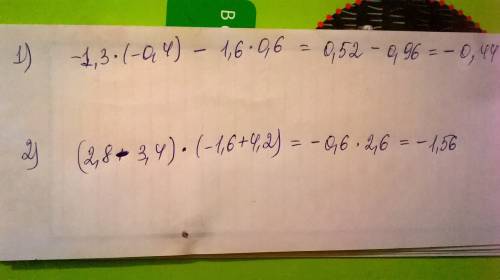 В
1) -1,3·(-0,4) - 1,6·0,6 = 0,52 - 0,96 = -0,44
2) (2,8 - 3,4)·(-1,6+4,2) = -0,6·2,6 = -1,56